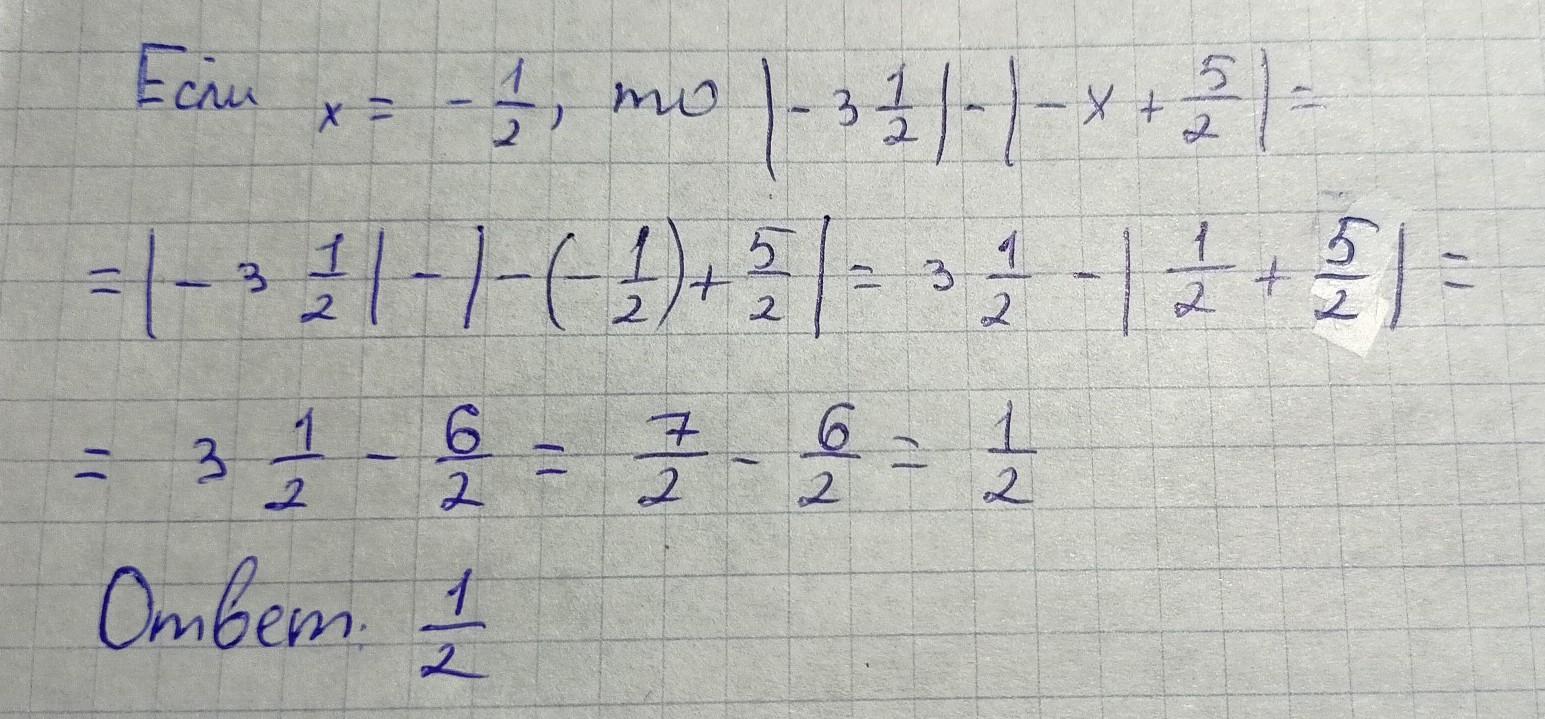 Если x = - 1/2, то |- 3 1/2| - |- x + 5/2| =
= |- 3 1/2| - |- (- 1/2) + 5/2| = 3 1/2 - | 1/2 + 5/2 | =
= 3 1/2 - 6/2 = 7/2 - 6/2 = 1/2
Ответ. 1/2